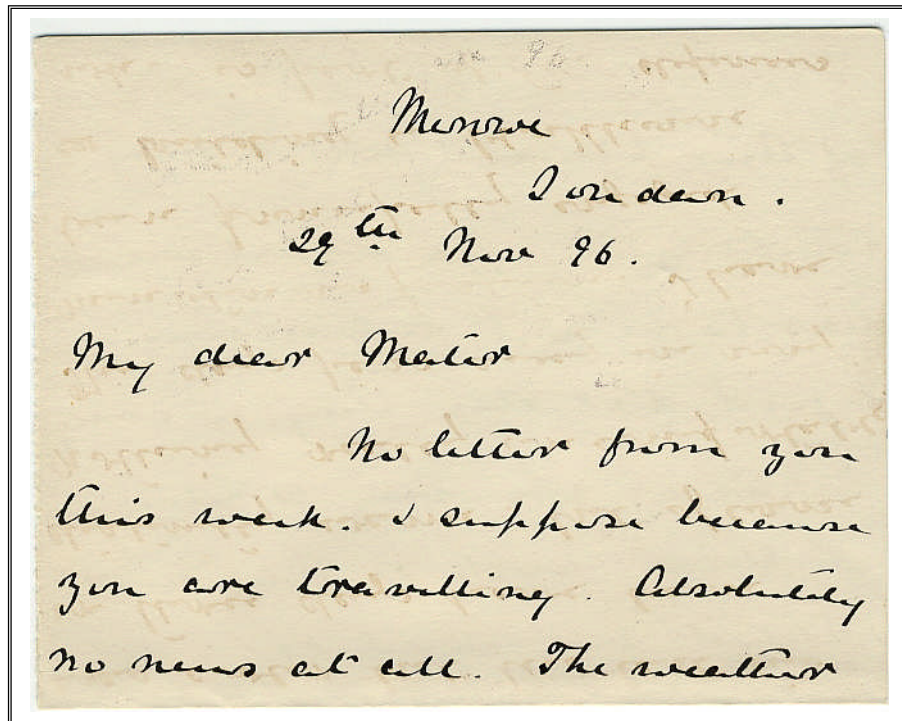 Merowe
Soudan.
29th Nov 96.
My dear Mater
No letter from you
this week. I suppose because
you are travelling. Absolutely
no news at all. The weather